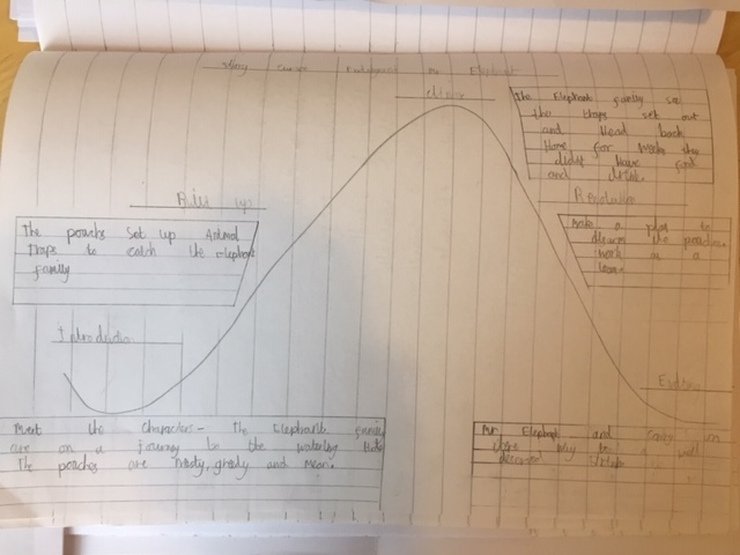 story curve Mr Elephant
climax
The Elephant family see
the traps set out
and Head back
Home for weeks they
didn't have food
and drink.
Build up
The poachs set up Animal
traps to catch the elephant
family
Resolution
Make a plan to
the poachers
work as a
team
Introduction
Meet the characters - the Elephant family
are on a journey to the watering Hole
The poaches are nasty, gredy and mean.
Ending
Mr Elephant and family
there way to a well
deserved drink